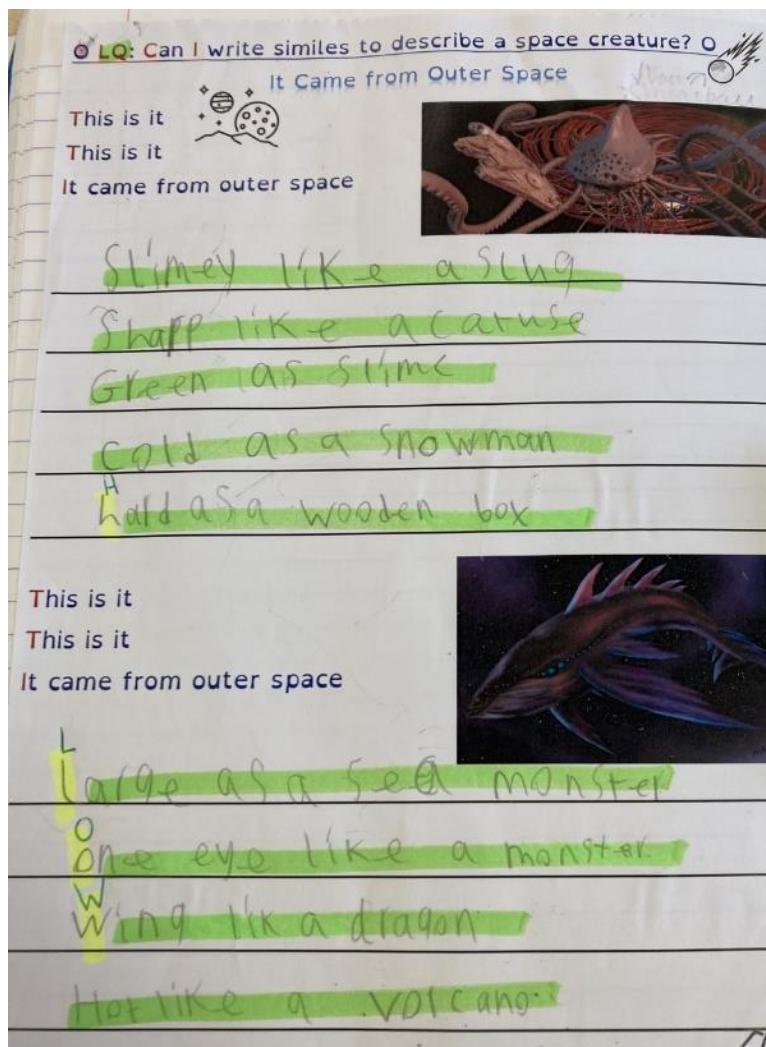 LQ: Can I write similes to describe a space creature?
It Came from Outer Space
This is it
This is it
It came from outer space
Slimey like a slug
Sharp like a caruse
Green as slime
Cold as a snowman
H
hard as a wooden box
This is it
This is it
It came from outer space
L
large as a sea monster
O
one eye like a monster.
W
wing lik a dragon
Hot like a volcano.